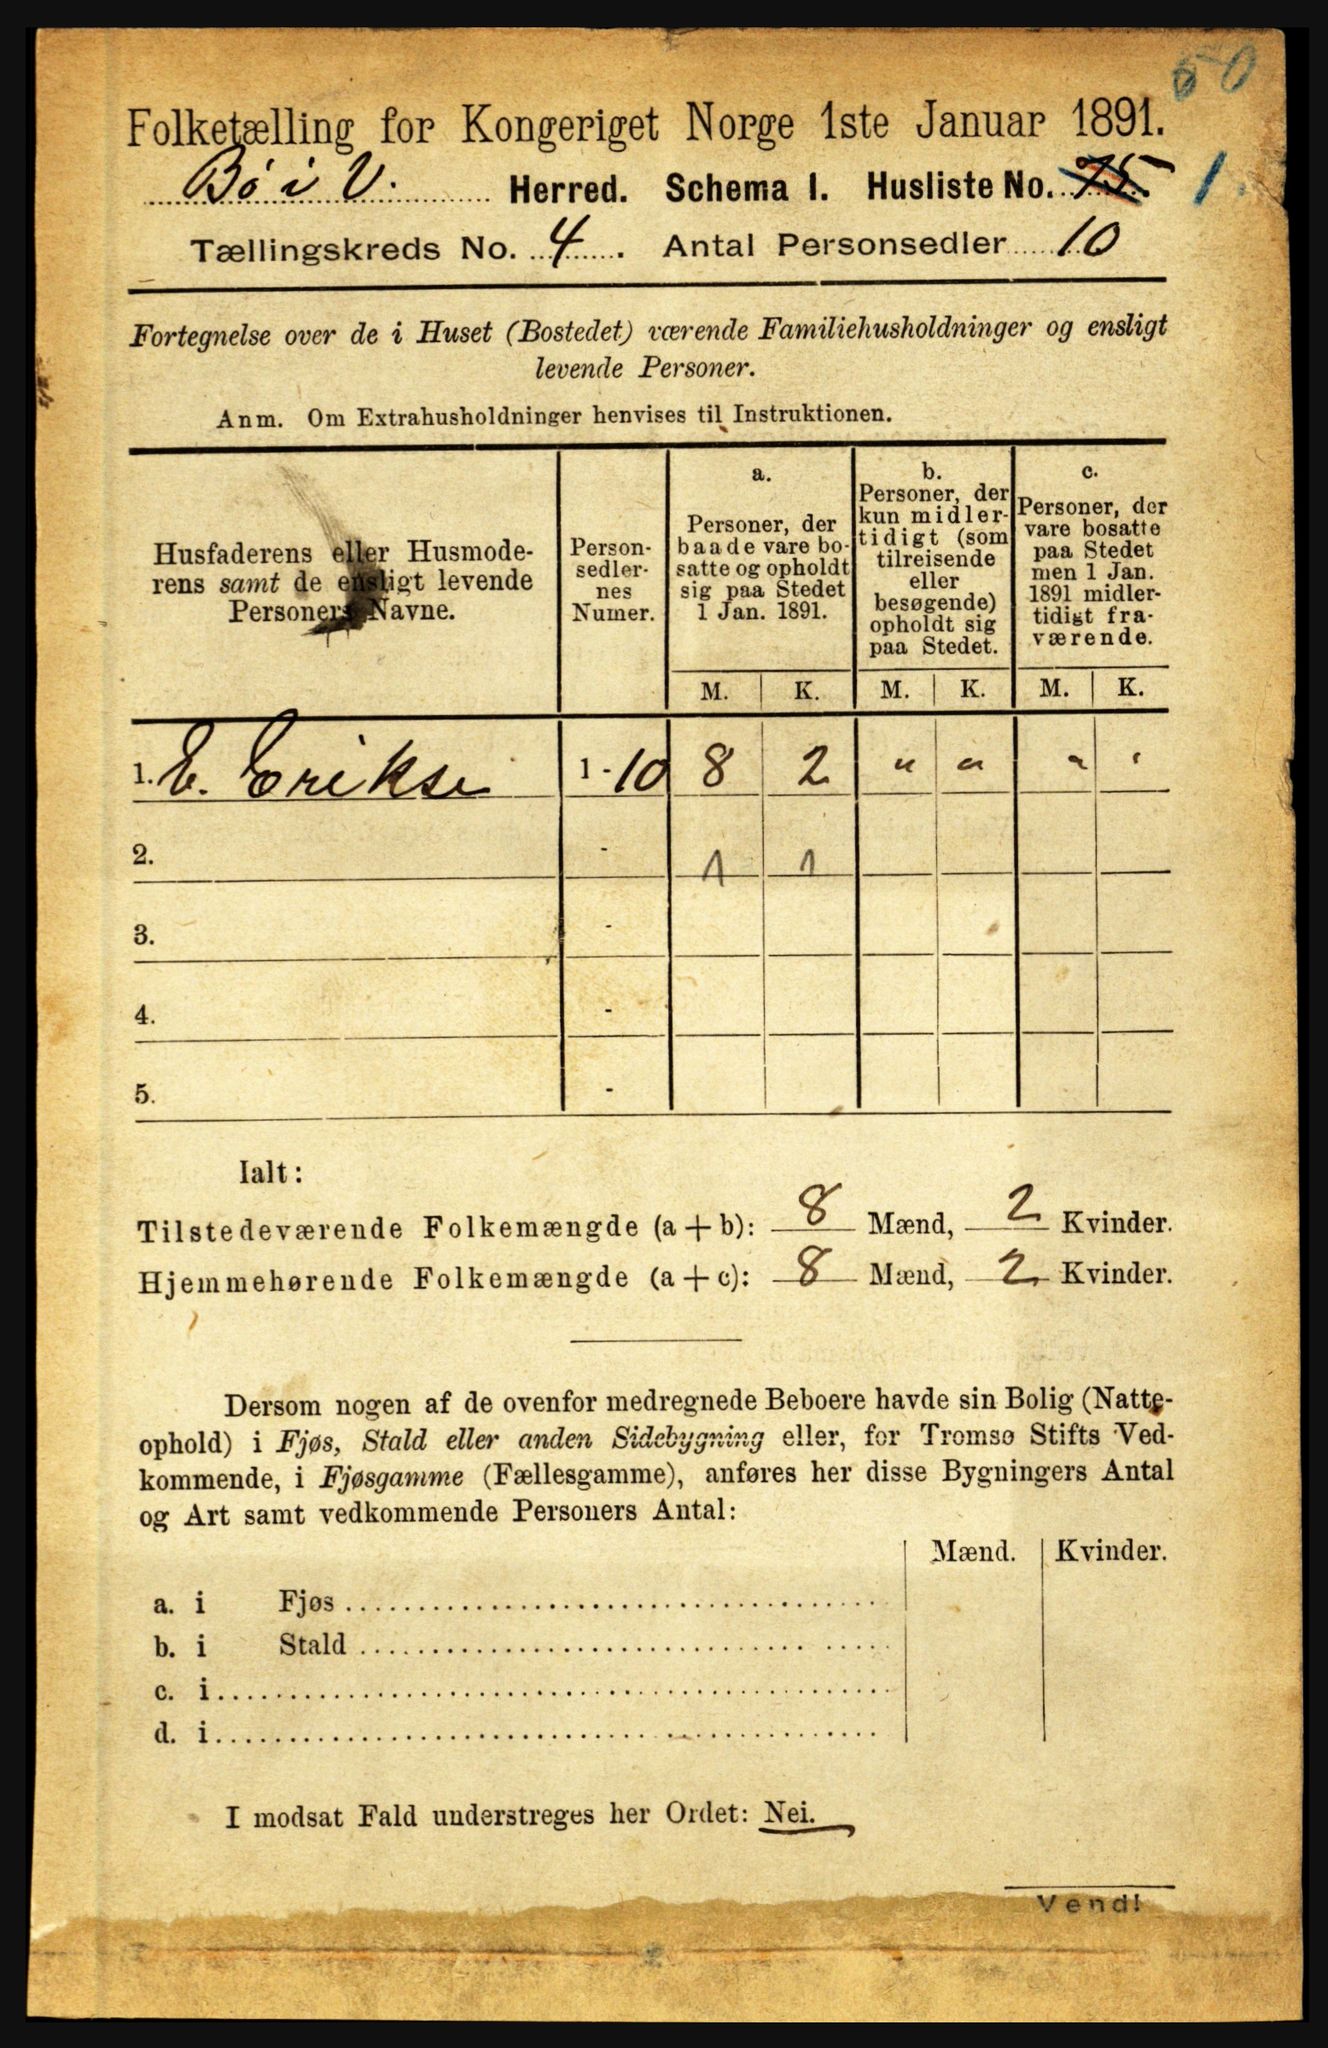 50
Folketælling for Kongeriget Norge 1ste Januar 1891.
Bø i V. Herred. Schema I. Husliste No. 75 1.
Tællingskreds No. 4. Antal Personsedler 10
Fortegnelse over de i Huset (Bostedet) værende Familiehusholdninger og ensligt
levende Personer.
Anm. Om Extrahusholdninger henvises til Instruktionen.
Husfaderens eller Husmode-
rens samt de ensligt levende
Personers Navne.
Person-
sedler-
nes
Numer.
a.
Personer, der
baade vare bo-
satte og opholdt
sig paa Stedet
1 Jan. 1891.
b.
Personer, der
kun midler-
tidigt (som
tilreisende
eller
besøgende)
opholdt sig
paa Stedet.
c.
Personer, der
vare bosatte
paa Stedet
men 1 Jan.
1891 midler-
tidigt fra-
værende.
M. K. M. K. M. K.
1. E. Erikse 1 - 10 8 2 " " " "
2. - 1 1
3. -
4. -
5. -
Ialt:
Tilstedeværende Folkemængde (a + b): 8 Mænd, 2 Kvinder.
Hjemmehørende Folkemængde (a + c): 8 Mænd, 2 Kvinder.
Dersom nogen af de ovenfor medregnede Beboere havde sin Bolig (Natte-
ophold) i Fjøs, Stald eller anden Sidebygning eller, for Tromsø Stifts Ved-
kommende, i Fjøsgamme (Fællesgamme), anføres her disse Bygningers Antal
og Art samt vedkommende Personers Antal:
Mænd. Kvinder.
a. i Fjøs
b. i Stald
c. i
d. i
I modsat Fald understreges her Ordet: Nei.
Vend!